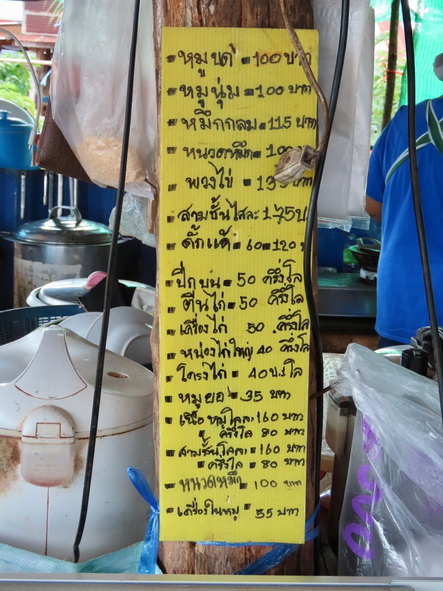 หมูบด = 100 บาท
หมูนุ่ม = 100 บาท
หมึกกลม = 115 บาท
หนวดหมึก = 100
พวงไข่ = 135 บาท
สามชั้นไสละ 175 บ
ดั๊กแด้ = 60 = 120 บ
ปีกบน = 50 ครึ่งโล
ตีนไก่ = 50 ครึ่งโล
เครื่องไก่ 50 ครึ่งโล
หน่องไก่ใหญ่ 40 ครึ่งโล
โครงไก่ = 40 บ.โล
หมูยอ = 35 บาท
เนื้อหมูโลละ 160 บาท
ครึ่งโล 80 บาท
สามชั้นโลละ = 160 บาท
ครึ่งโล = 80 บาท
หนวดหมึก = 100 บาท
เครื่องในหมู = 35 บาท